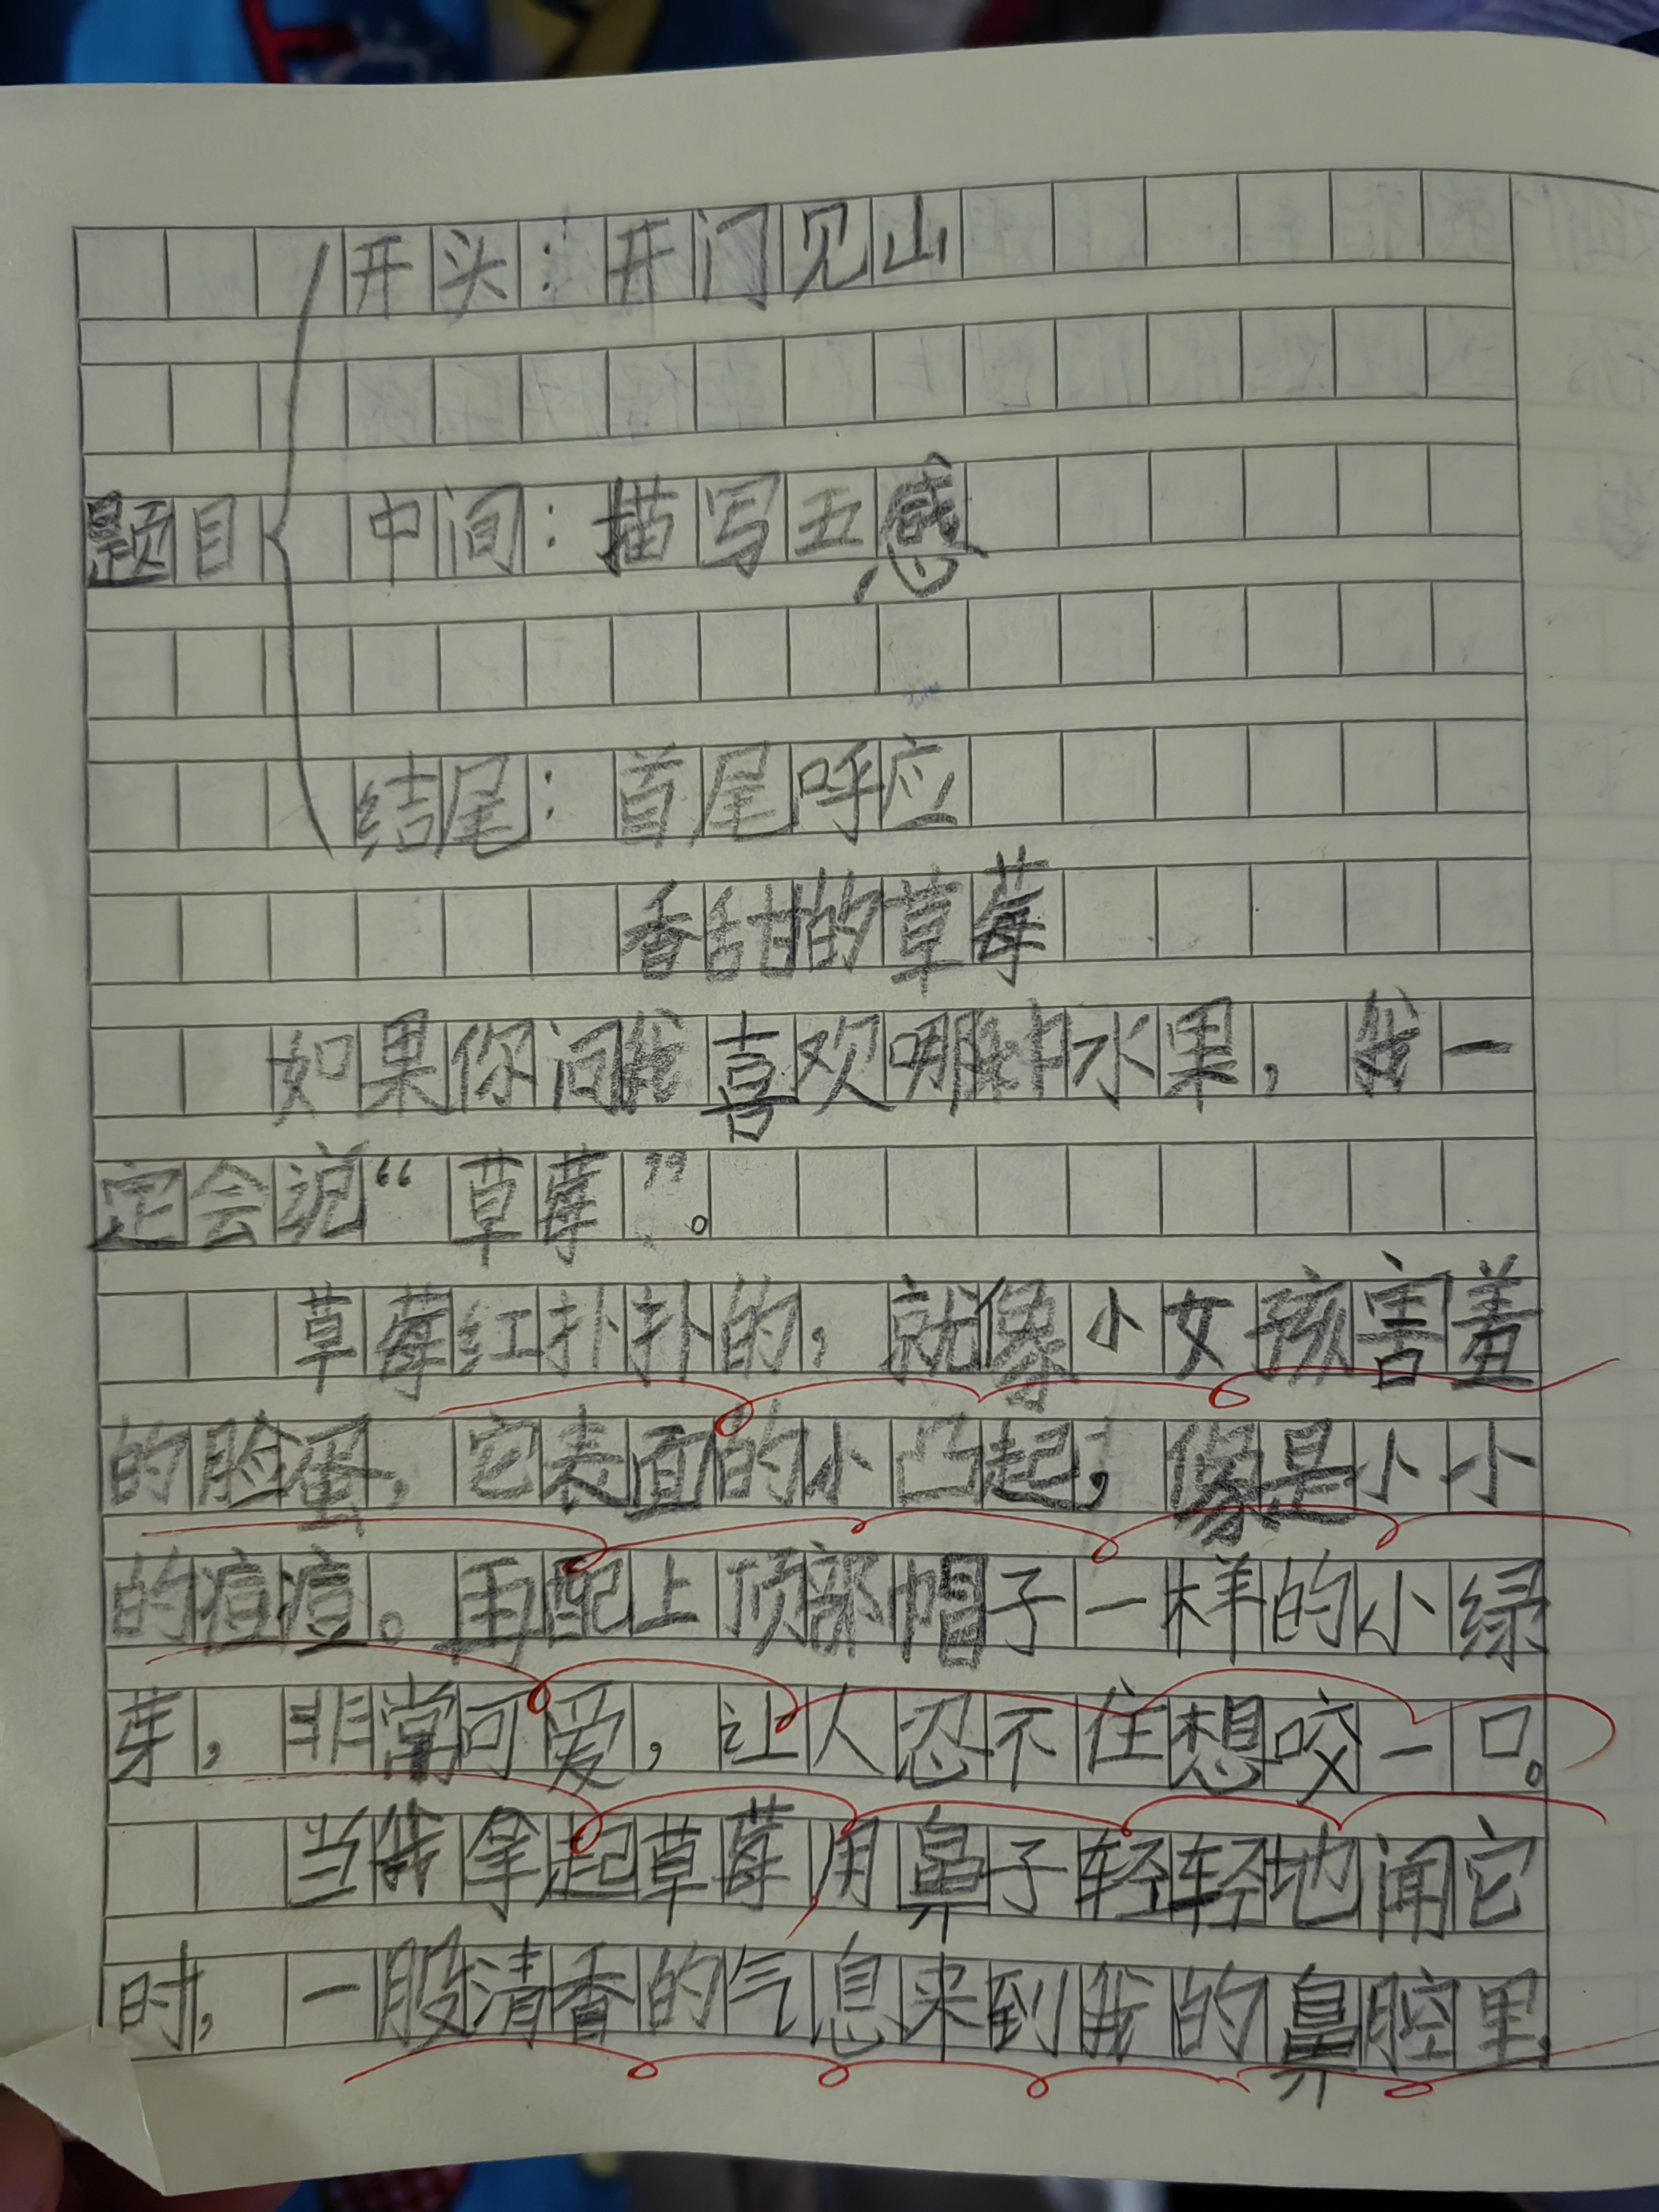 开头：开门见山
题目 中间：描写五感
结尾：首尾呼应
香甜的草莓
如果你问我喜欢哪种水果，我一
定会说“草莓”。
草莓红扑扑的，就像小女孩害羞
的脸蛋，它表面的小凸起，像是小小
的痘痘。再配上顶部帽子一样的小绿
芽，非常可爱，让人忍不住想咬一口。
当我拿起草莓用鼻子轻轻地闻它
时，一股清香的气息来到我的鼻腔里，